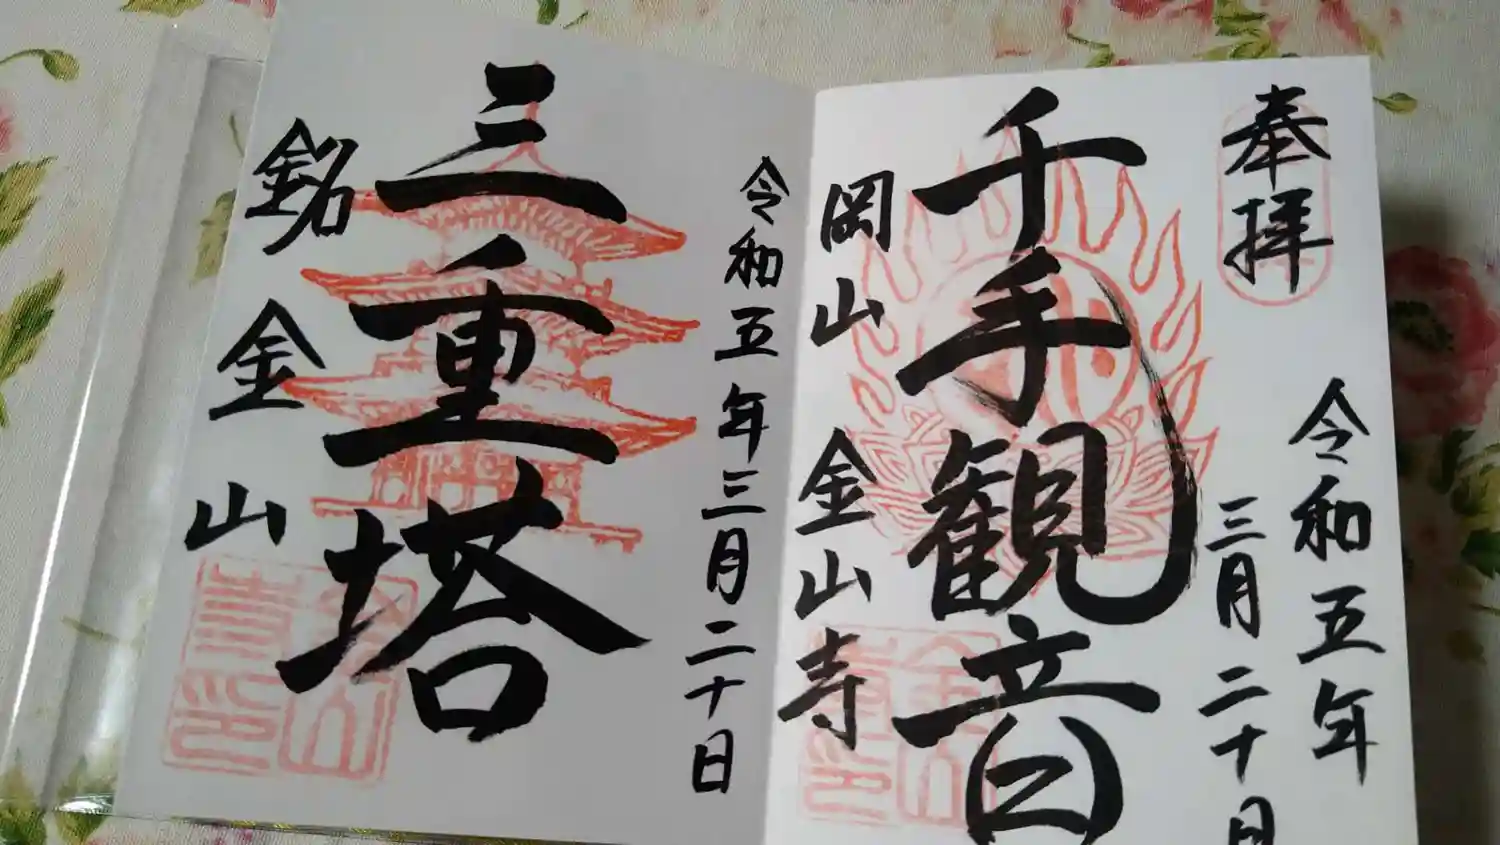 奉拝
令和五年
三月二十日
千手観音
岡山 金山寺
令和五年三月二十日
三重塔
銘金山